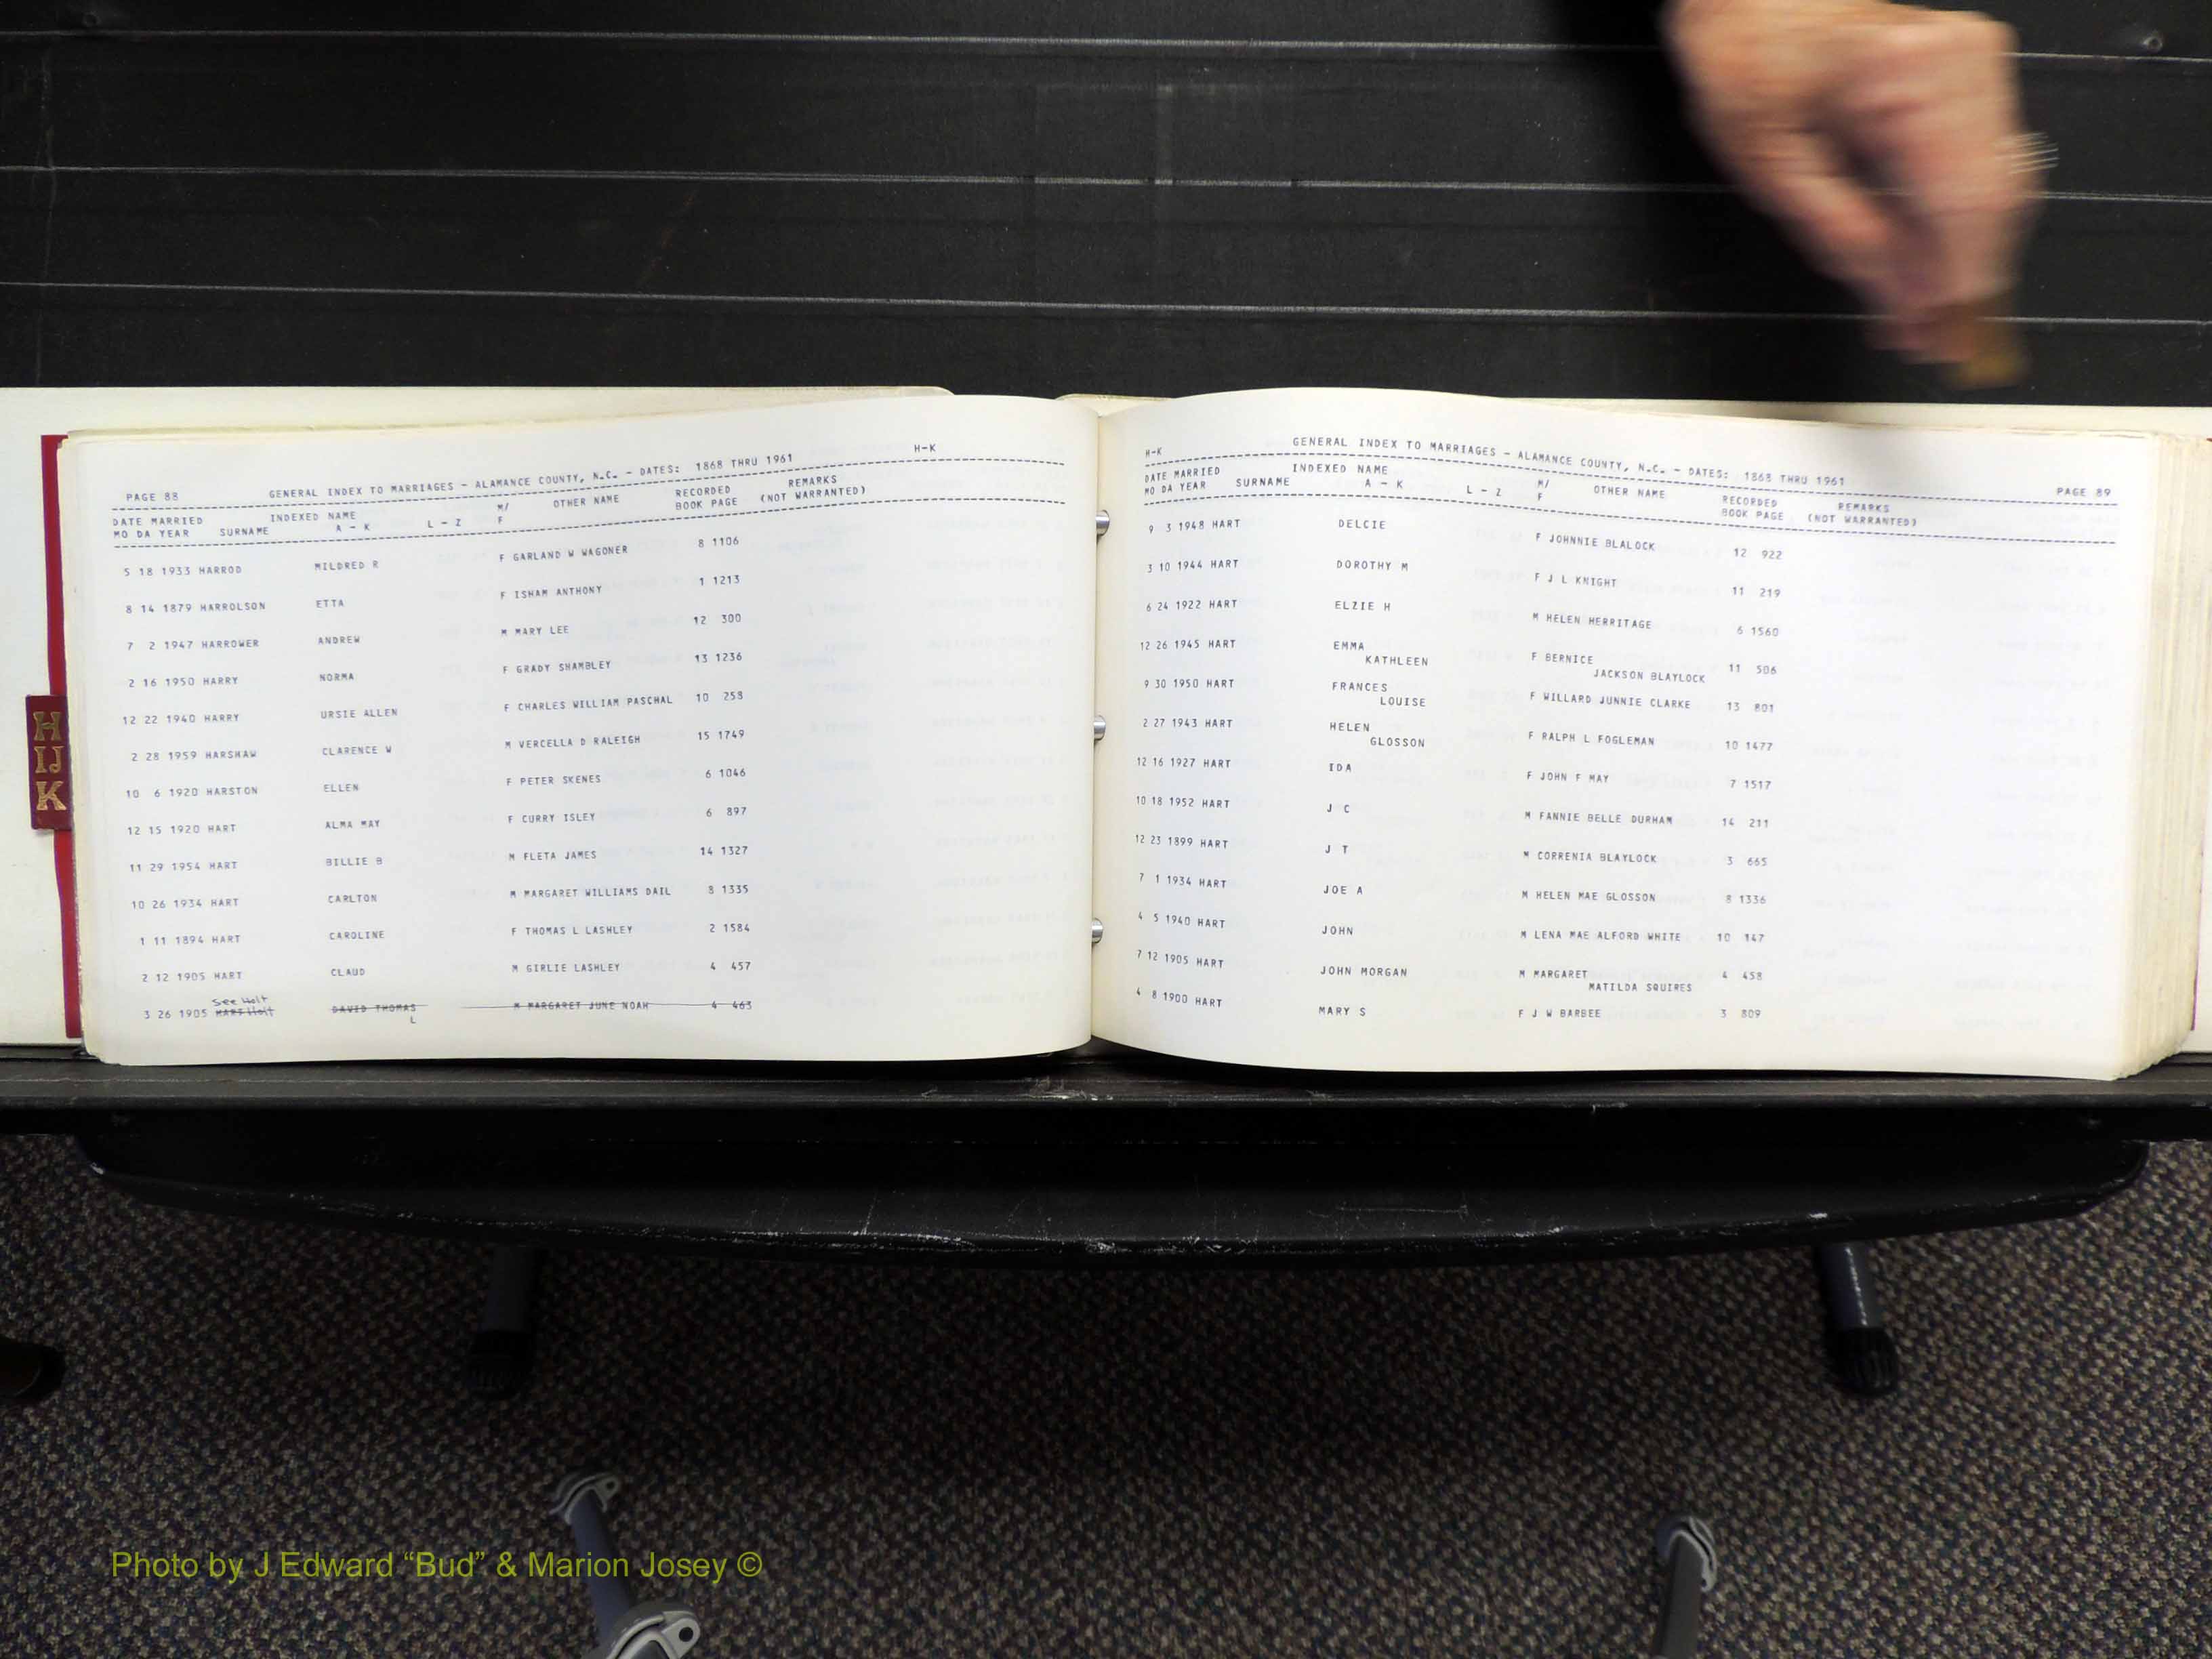 H
IJ
K
PAGE 88 GENERAL INDEX TO MARRIAGES - ALAMANCE COUNTY, N.C. - DATES: 1868 THRU 1961 H-K
DATE MARRIED INDEXED NAME M/ OTHER NAME RECORDED REMARKS
MO DA YEAR SURNAME A - K L - Z F BOOK PAGE (NOT WARRANTED)
5 18 1933 HARROD MILDRED R F GARLAND W WAGONER 8 1106
8 14 1879 HARROLSON ETTA F ISHAM ANTHONY 1 1213
7 2 1947 HARROWER ANDREW M MARY LEE 12 300
2 16 1950 HARRY NORMA F GRADY SHAMBLEY 13 1236
12 22 1940 HARRY URSIE ALLEN F CHARLES WILLIAM PASCHAL 10 258
2 28 1959 HARSHAW CLARENCE W M VERCELLA D RALEIGH 15 1749
10 6 1920 HARSTON ELLEN F PETER SKENES 6 1046
12 15 1920 HART ALMA MAY F CURRY ISLEY 6 897
11 29 1954 HART BILLIE B M FLETA JAMES 14 1327
10 26 1934 HART CARLTON M MARGARET WILLIAMS DAIL 8 1335
1 11 1894 HART CAROLINE F THOMAS L LASHLEY 2 1584
2 12 1905 HART CLAUD M GIRLIE LASHLEY 4 457
See Holt
3 26 1905 HART Holt DAVID THOMAS M MARGARET JUNE NOAH 4 463
L
H-K GENERAL INDEX TO MARRIAGES - ALAMANCE COUNTY, N.C. - DATES: 1868 THRU 1961 PAGE 89
DATE MARRIED INDEXED NAME M/ OTHER NAME RECORDED REMARKS
MO DA YEAR SURNAME A - K L - Z F BOOK PAGE (NOT WARRANTED)
9 3 1948 HART DELCIE F JOHNNIE BLALOCK 12 922
3 10 1944 HART DOROTHY M F J L KNIGHT 11 219
6 24 1922 HART ELZIE H M HELEN HERRITAGE 6 1560
12 26 1945 HART EMMA F BERNICE 11 506
KATHLEEN JACKSON BLAYLOCK
9 30 1950 HART FRANCES F WILLARD JUNNIE CLARKE 13 801
LOUISE
2 27 1943 HART HELEN F RALPH L FOGLEMAN 10 1477
GLOSSON
12 16 1927 HART IDA F JOHN F MAY 7 1517
10 18 1952 HART J C M FANNIE BELLE DURHAM 14 211
12 23 1899 HART J T M CORRENIA BLAYLOCK 3 665
7 1 1934 HART JOE A M HELEN MAE GLOSSON 8 1336
4 5 1940 HART JOHN M LENA MAE ALFORD WHITE 10 147
7 12 1905 HART JOHN MORGAN M MARGARET 4 458
MATILDA SQUIRES
4 8 1900 HART MARY S F J W BARBEE 3 809
Photo by J Edward “Bud” & Marion Josey ©